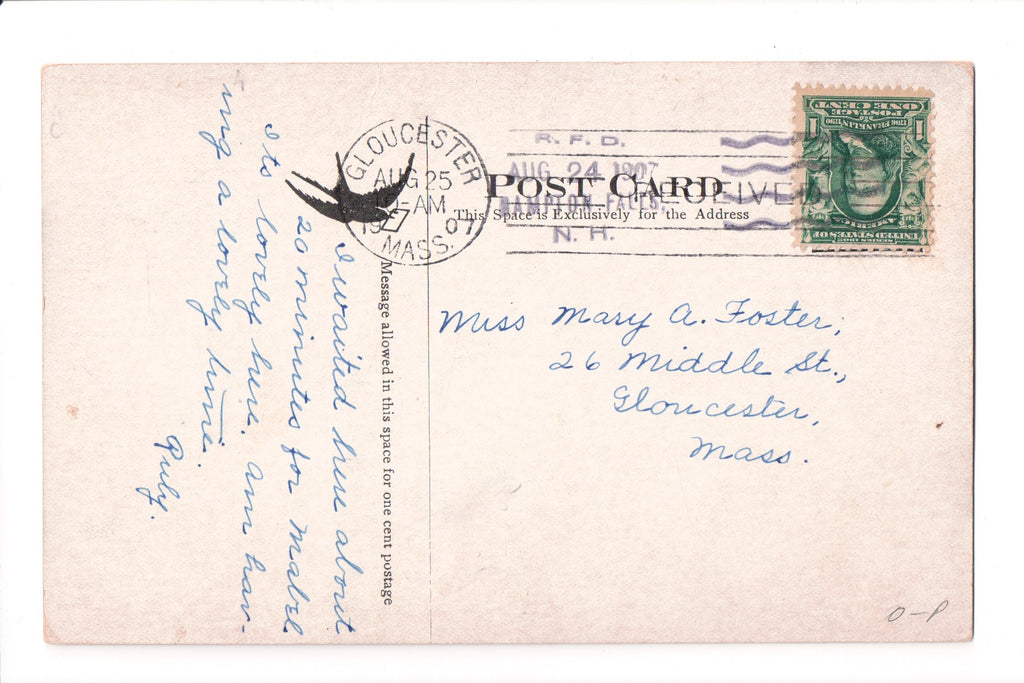 POST CARD
This Space is Exclusively for the Address
Message allowed in this space for one cent postage
GLOUCESTER
AUG 25
-AM
19 07
MASS.
RECEIVED
R. F. D.
AUG 24 1907
HAMPTON FALLS,
N. H.
SERIES 1902
UNITED STATES OF
AMERICA
1706 FRANKLIN 1790
POSTAGE
ONE CENT
1 1
Miss Mary A. Foster,
26 Middle St.,
Gloucester,
Mass.
I waited here about
20 minutes for Mabel
Its lovely here. Am hav-
ing a lovely time.
O-P